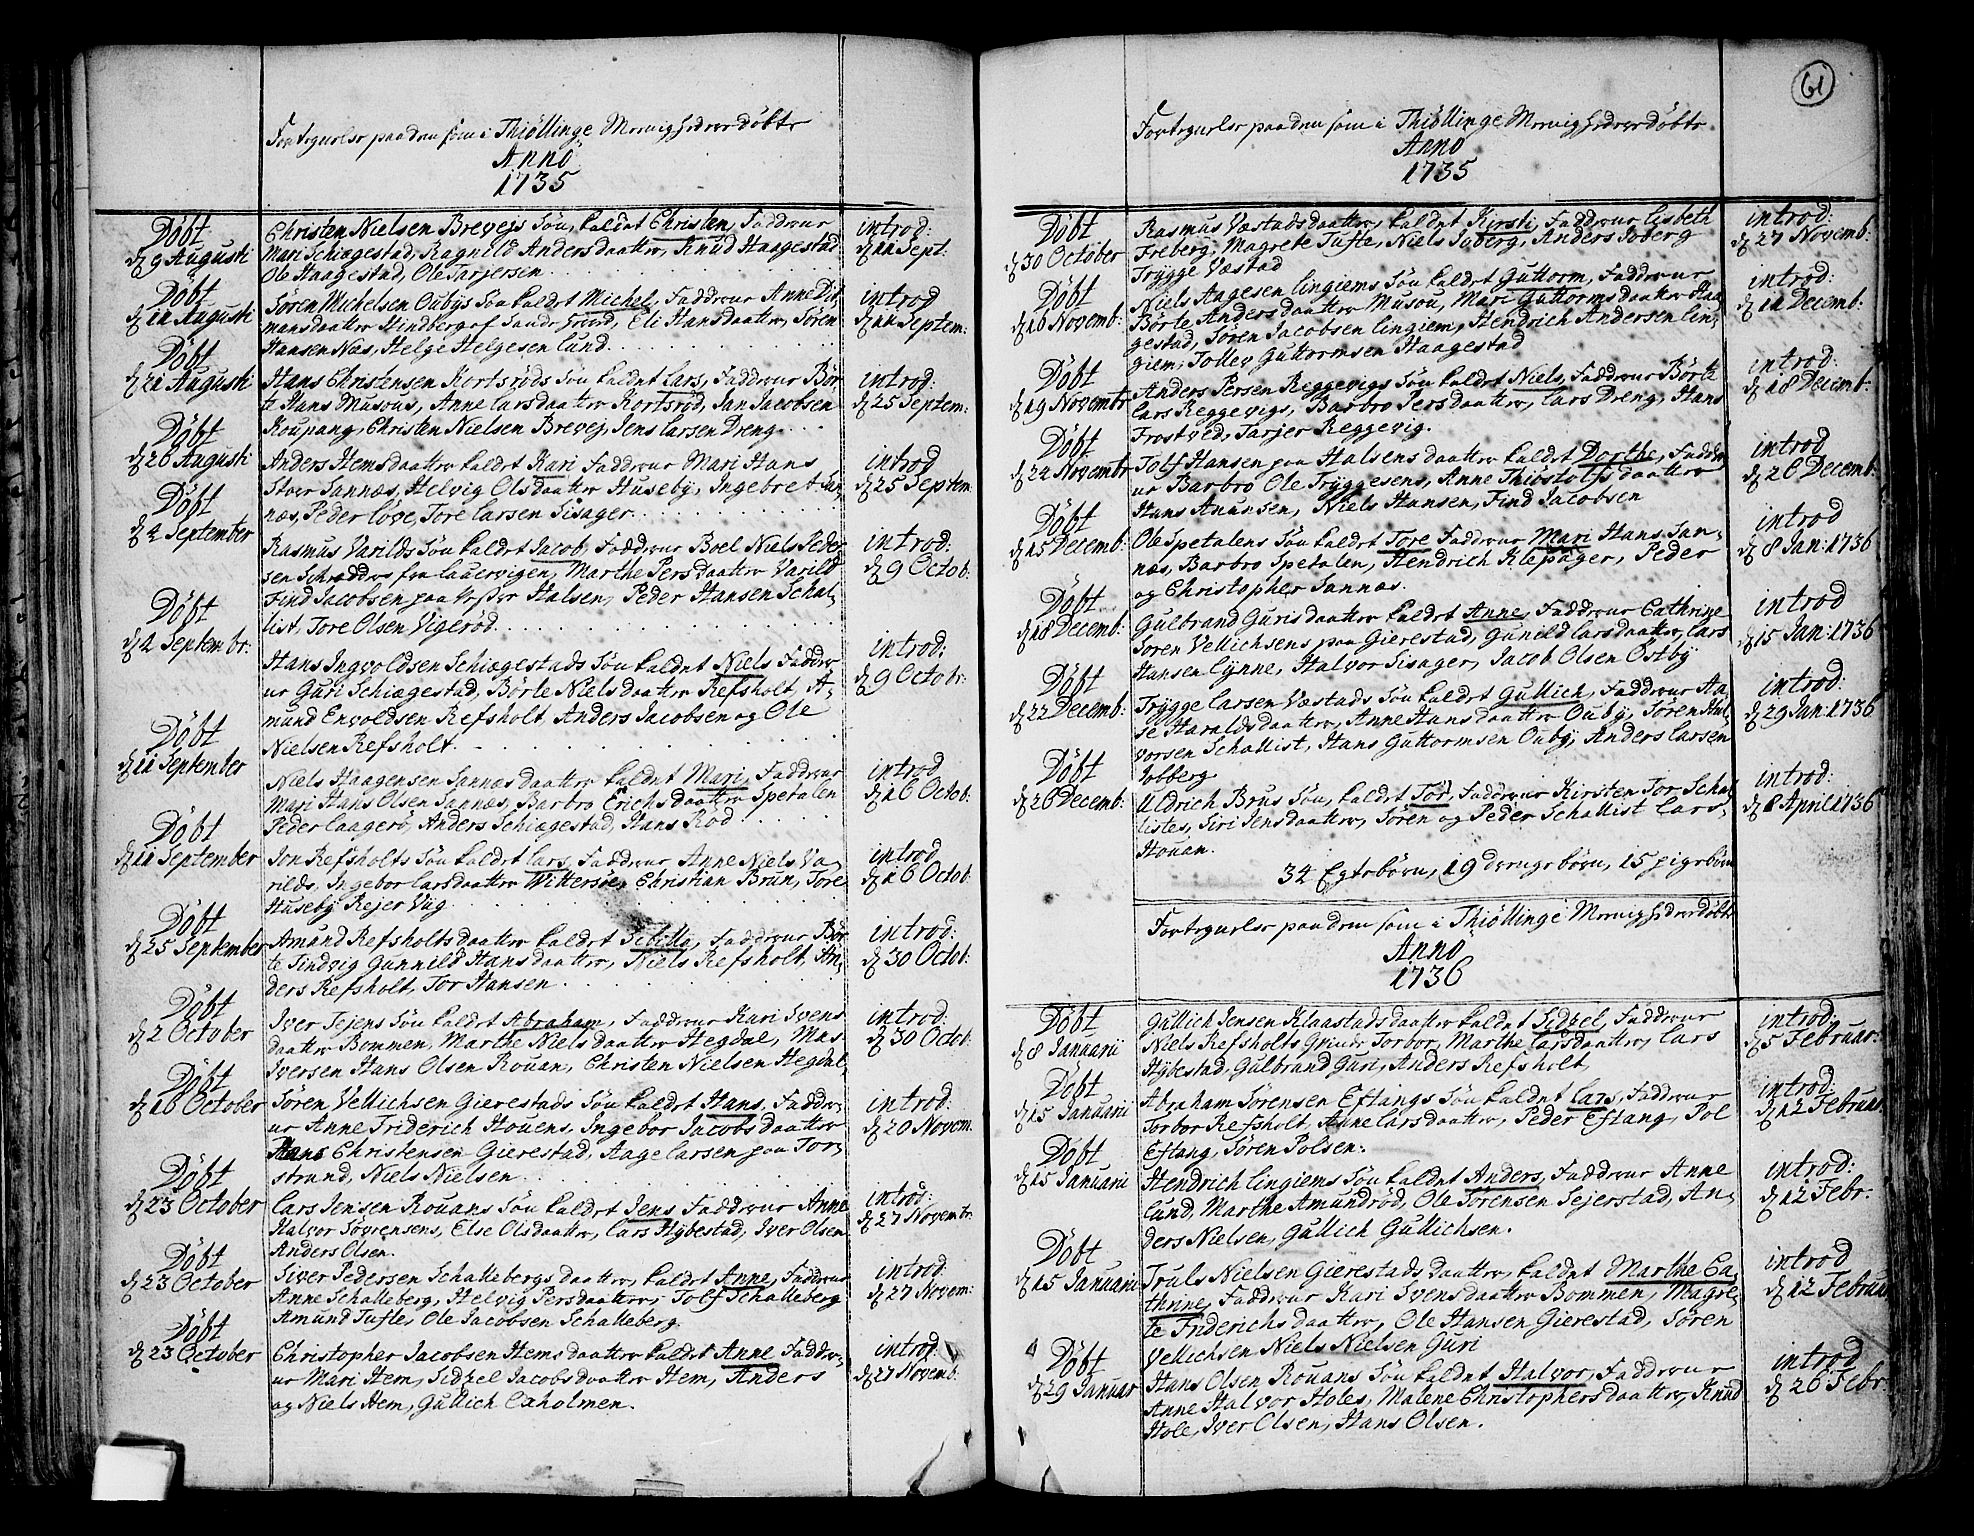 Fortegnelse paa dem som i Thiöllinge Menighed ere döbte
Anno
1735
Döbt
d 9 Augusti
Christen Nielsen Brevejs Sön, kaldet Christen, Faddere
Mari Schiægestad, Ragnild Andersdaatter, Knud Haagestad
Ole Haagestad, Ole Tarjersen
introd:
d 11 Sept:
Döbt
d 11 Augusti
Sören Michelsen Oubÿs Sön kaldet Michel, Faddere Anne Dit-
mansdaatter Hindberg Eli Hansdaatter, Sören
Hansen Næs, Helge Helgesen Lund
introd
d 11 Septem:
Döbt
d 21 Augusti
Hans Christensen Kortsröds Sön kaldet Lars, Faddere Bör-
te Hans Musous, Anne Larsdaatter Kortsröd, Jan Jacobsen
Koupang, Christen Nielsen Brevej, Jens Larsen Dreng
introd:
d 25 Septem:
Döbt
d 26 Augusti
Anders Hems daatter kaldet Kari Faddere Mari Hans
Sannæs, Helvig Olsdaatter Husebÿ, Ingebret San-
næs, Peder Love, Tore Larsen Sisager
introd
d 25 Septem:
Döbt
d 4 September
Rasmus Varilds Sön kaldet Jacob, Faddere Boel Niels Peder-
sen fra Lauervigen, Marthe Persdaatter Varild
Find Jacobsen paa Halsen, Peder Hansen Schal-
list, Tore Olsen Vigeröd
introd:
d 9 Octob:
Döbt
d 4 Septembr:
Hans Ingvoldsen Schiægestads Sön kaldet Niels Fadde-
re Guri Schiægestad, Börte Nielsdaatter Refsholt, A-
mund Envoldsen Refsholt, Anders Jacobsen og Ole
Nielsen Refsholt
introd:
d 9 Octobr:
Döbt
d 11 September
Niels Haagensen Sannæs daatter kaldet Mari, Faddere
Mari Hans Olsen Sannæs, Barbro Erichsdaatter Spetalen
Peder Laagerö, Anders Schiægestad, Hans Röd
introd
d 16 Octob:
Döbt
d 11 September
Jon Refsholts Sön kaldet Lars, Faddere Anne Niels Va-
rilds, Ingebor Larsdaatter Wittersöe, Christian Brun, Tore
Husebÿ Rejer Viig
introd
d 16 Octob:
Döbt
d 25 September
Amund Refsholts daatter kaldet Sibilla, Faddere Bör-
te Tindvig Gunnild Hansdaatter, Niels Refsholt, An-
ders Refsholt, Tor Hansen
introd:
d 30 Octob:
Döbt
d 2 October
Iver Tejens Sön kaldet Abraham, Faddere Kari Svens-
daatter Bommen, Marthe Nielsdaatter Hegdal, Mas
Iversen Hans Olsen Rouan, Christen Nielsen Hegdal
introd:
d 30 Octob:
Döbt
d 16 October
Sören Vellichsen Gierestads Sön kaldet Hans, Fadde-
re Anne Friderich Hovens, Ingebor Jacobsdaatter
Hans Christensen Gierestad, Aage Larsen paa Tor-
strand, Niels Nielsen
introd:
d 20 Novem:
Döbt
d 23 October
Lars Jensen Rouans Sön kaldet Jens Faddere Anne
Halvor Sörensens, Else Olsdaatter, Lars Hÿbestad, Iver Olsen
Anders Olsen.
introd:
d 27 Novembr:
Döbt
d 23 October
Siver Pedersen Schallebergs daatter, kaldet Anne, Faddere
Anne Schalleberg, Helvig Persdaatter, Tolf Schalleberg
Amund Tufte, Ole Jacobsen Schalleberg
introd
d 27 Novem:
Döbt
d 23 October
Christopher Jacobsen Hems daatter kaldet Anne Fadde-
re Mari Hem, Sidzel Jacobsdaatter Hem, Anders
og Niels Hem, Gullich Oxholmen.
introd:
d 27 Novemb:
61
Fortegnelse paa dem som i Thiöllinge Menighed ere döbte
Anno
1735
Döbt
d 30 October
Rasmus Væstads daatter, kaldet Kirsti, Faddere Lisbeth
Freberg, Magrete Tufte, Niels Joberg, Anders Joberg
Trÿgge Væstad
introd:
d 27 Novemb:
Döbt
d 16 Novemb:
Niels Aagesen Lingiems Sön kaldet Guttorm, Faddere
Börte Andersdaatter Musou, Mari Guttormsdaatter Haa-
gestad, Sören Jacobsen Lingiem, Hendrich Andersen Lin-
giem, Tollev Guttormsen Haagestad
introd:
d 11 Decemb:
Döbt
d 19 Novembr
Anders Persen Reggevigs Sön kaldet Niels, Faddere Börte
Lars Reggevigs, Barbro Persdaatter, Lars Dreng, Hans
Frostved, Tarjer Reggevig.
introd:
d 18 Decemb:
Döbt
d 24 Novembr
Tolf Hansen paa Halsens daatter kaldet Dorthe, Fadde-
re Barbro Ole Trÿggesens, Anne Thiöstolfsdaatter
Hans Hansen, Niels Hansen, Find Jacobsen
introd
d 26 Decemb:
Döbt
d 15 Decemb:
Ole Spetalens Sön kaldet Tore Faddere Mari Hans San-
næs, Barbro Spetalen, Hendrich Klepager, Peder
og Christopher Sannæs.
introd
d 8 Jan: 1736
Döbt
d 18 Decemb:
Gulbrand Guris daatter kaldet Anne, Faddere Cathrine
Sören Vellichsens paa Gierestad, Gunild Larsdaatter, Lars
Hansen Lÿnne, Halvor Sisager, Jacob Olsen Östbÿ
introd
d 15 Jan: 1736
Döbt
d 22 Decemb:
Trÿgge Larsen Væstads Sön kaldet Gullich, Faddere Aa-
se Haraldsdaatter, Anne Hansdaatter Oubÿ, Sören Hal-
vorsen Schallist, Hans Guttormsen Oubÿ, Anders Larsen
Jobberg
introd:
d 29 Jan: 1736
Döbt
d 26 Decemb:
Uldrich Brus Sön, kaldet Tor, Faddere Kirsten Tor Schal-
listes, Siri Jensdaatter, Sören og Peder Schallist Lars
Houan.
introd:
d 8 April 1736
34 Egtebörn, 19 drengebörn, 15 pigebörn
Fortegnelse paa dem som i Thiöllinge Menighed ere döbte
Anno
1736
Döbt
d 8 Januarii
Gullich Jensen Klaastads daatter kaldet Sidzel, Faddere
Niels Refsholts Torbor, Marthe Larsdaatter, Lars
Hÿbestad, Gulbrand Guri, Anders Refsholt
introd:
d 5 Februar:
Döbt
d 15 Januarii
Abraham Sörensen Eftangs Sön kaldet Lars, Faddere
Torbor Refsholt, Anne Larsdaatter, Peder Eftang, Pol
Eftang, Sören Polsen.
introd:
d 12 Februar
Döbt
d 15 Januarii
Hendrich Lingiems Sön kaldet Anders, Faddere Anne
Lund, Marthe Amundröd, Ole Sörensen Sejerstad, An-
ders Nielsen, Gullich Gullichsen.
introd:
d 12 Febr:
Döbt
d 15 Januarii
Truls Nielsen Gierestads daatter, kaldet Marthe Ca-
thrine, Faddere Kari Svensdaatter Bommen, Magre-
te Friderichsdaatter, Ole Hansen Gierestad, Sören
Vellichsen Niels Nielsen Guri
introd
d 12 Februar
Döbt
d 29 Januar
Hans Olsen Rouans Sön kaldet Halvor, Faddere
Anne Halvor Holes, Malene Christophersdaatter, Knud
Hole, Iver Olsen, Hans Olsen.
introd
d 26 Febr: